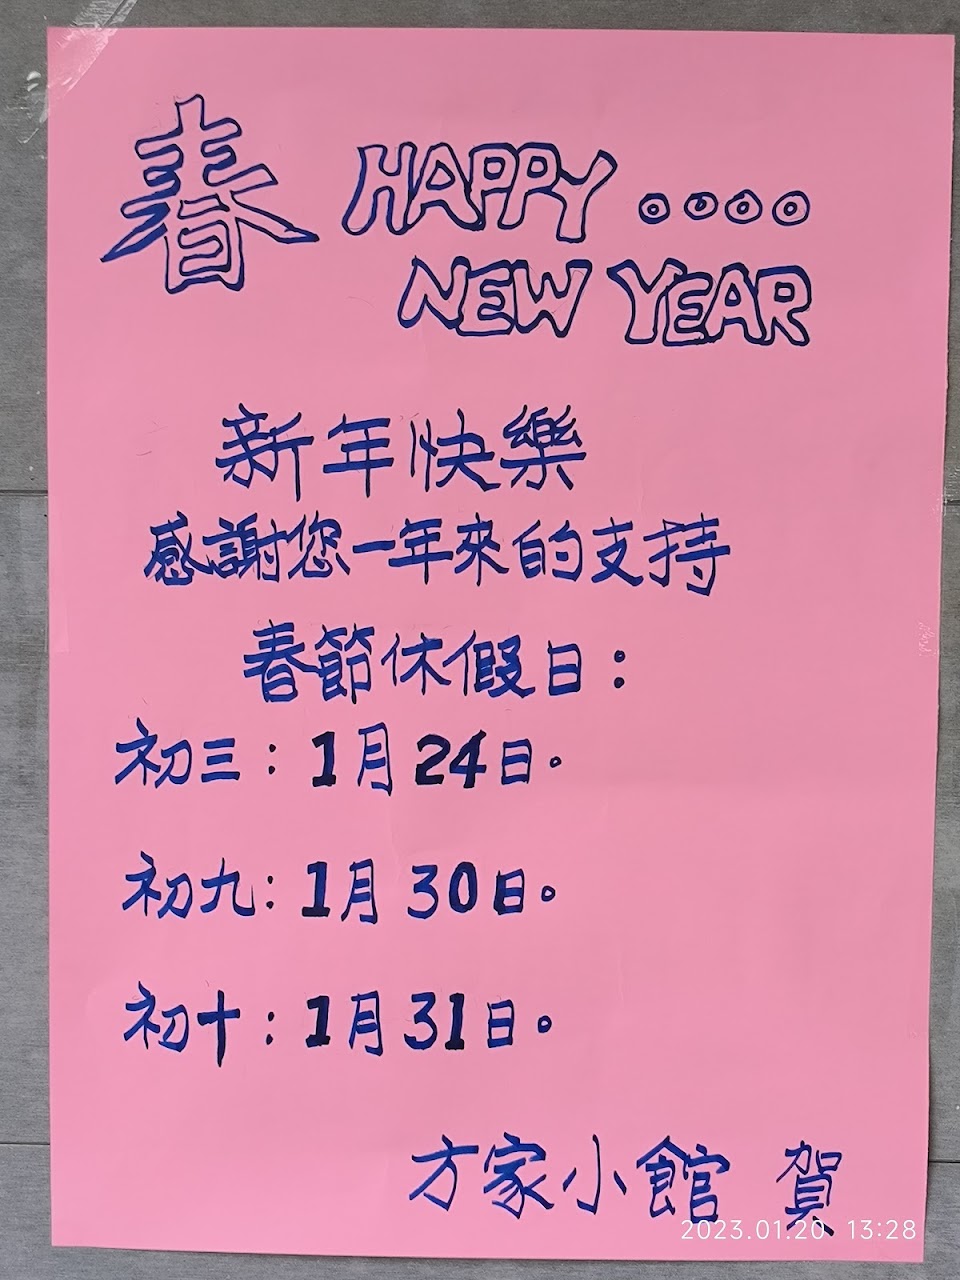 春 HAPPY 。。。。
NEW YEAR
新年快樂
感謝您一年來的支持
春節休假日：
初三：1月24日。
初九：1月30日。
初十：1月31日。
方家小館 賀
2023.01.20 13:28